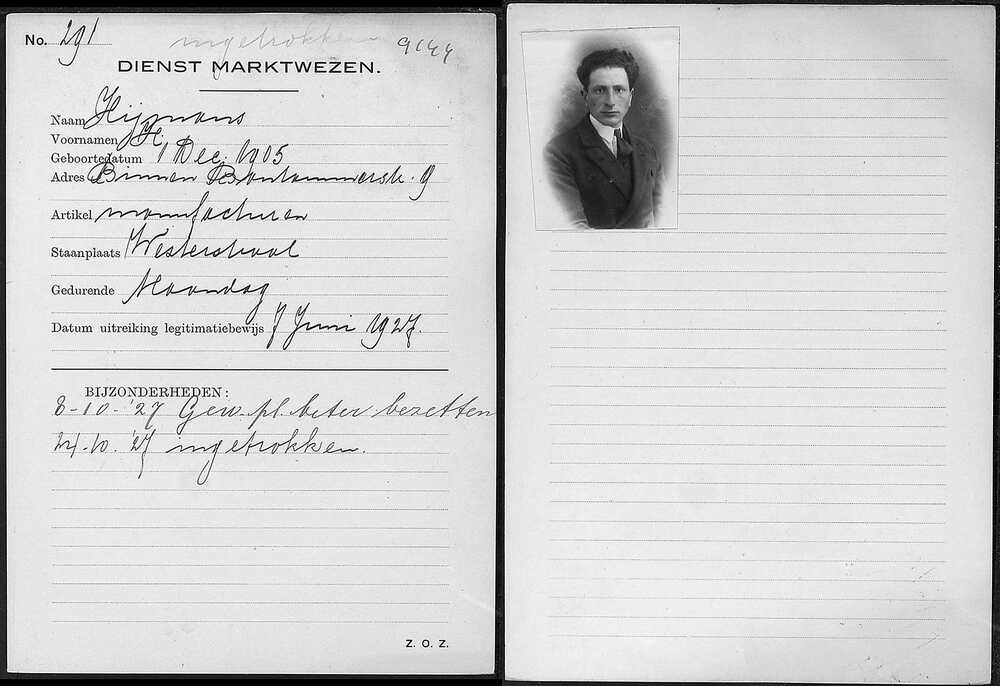 No. 291 ingetrokken 9144
DIENST MARKTWEZEN.
Naam Hijmans
Voornamen H.
Geboortedatum 1 Dec. 1905
Adres Binnen Bantammerstr. 9
Artikel manufacturen
Staanplaats Westerstraat
Gedurende Maandag
Datum uitreiking legitimatiebewijs 7 Juni 1927.
BIJZONDERHEDEN:
8-10-'27 Gew. pl. beter bezetten
24-10-'27 ingetrokken.
Z. O. Z.